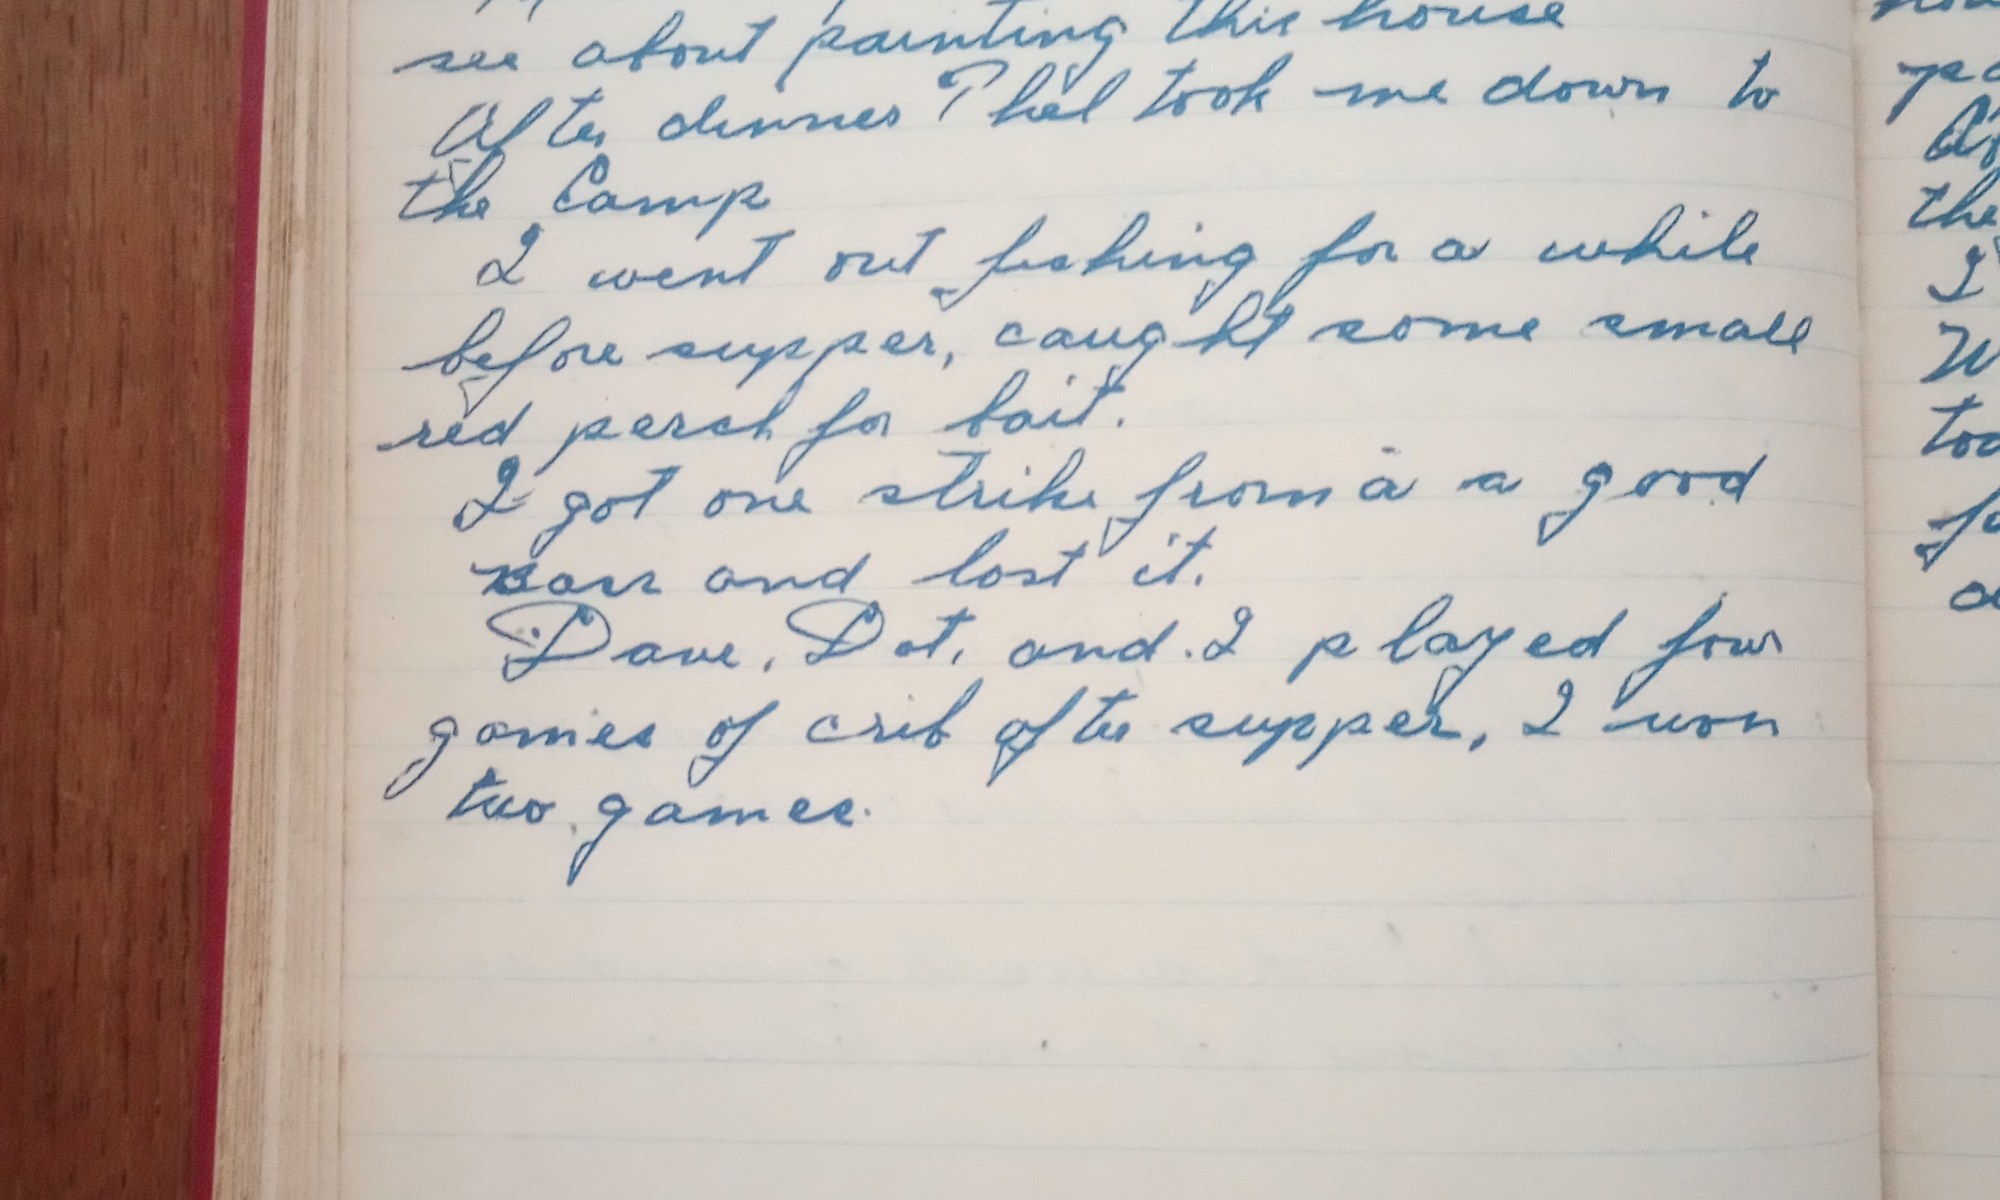 see about painting this house
After dinner Phil took me down to
the Camp
I went out fishing for a while
before supper, caught some small
red perch for bait.
I got one strike from a a good
and lost it.
Dave, Dot, and I played four
games of crib after supper, I won
two games.
the
I